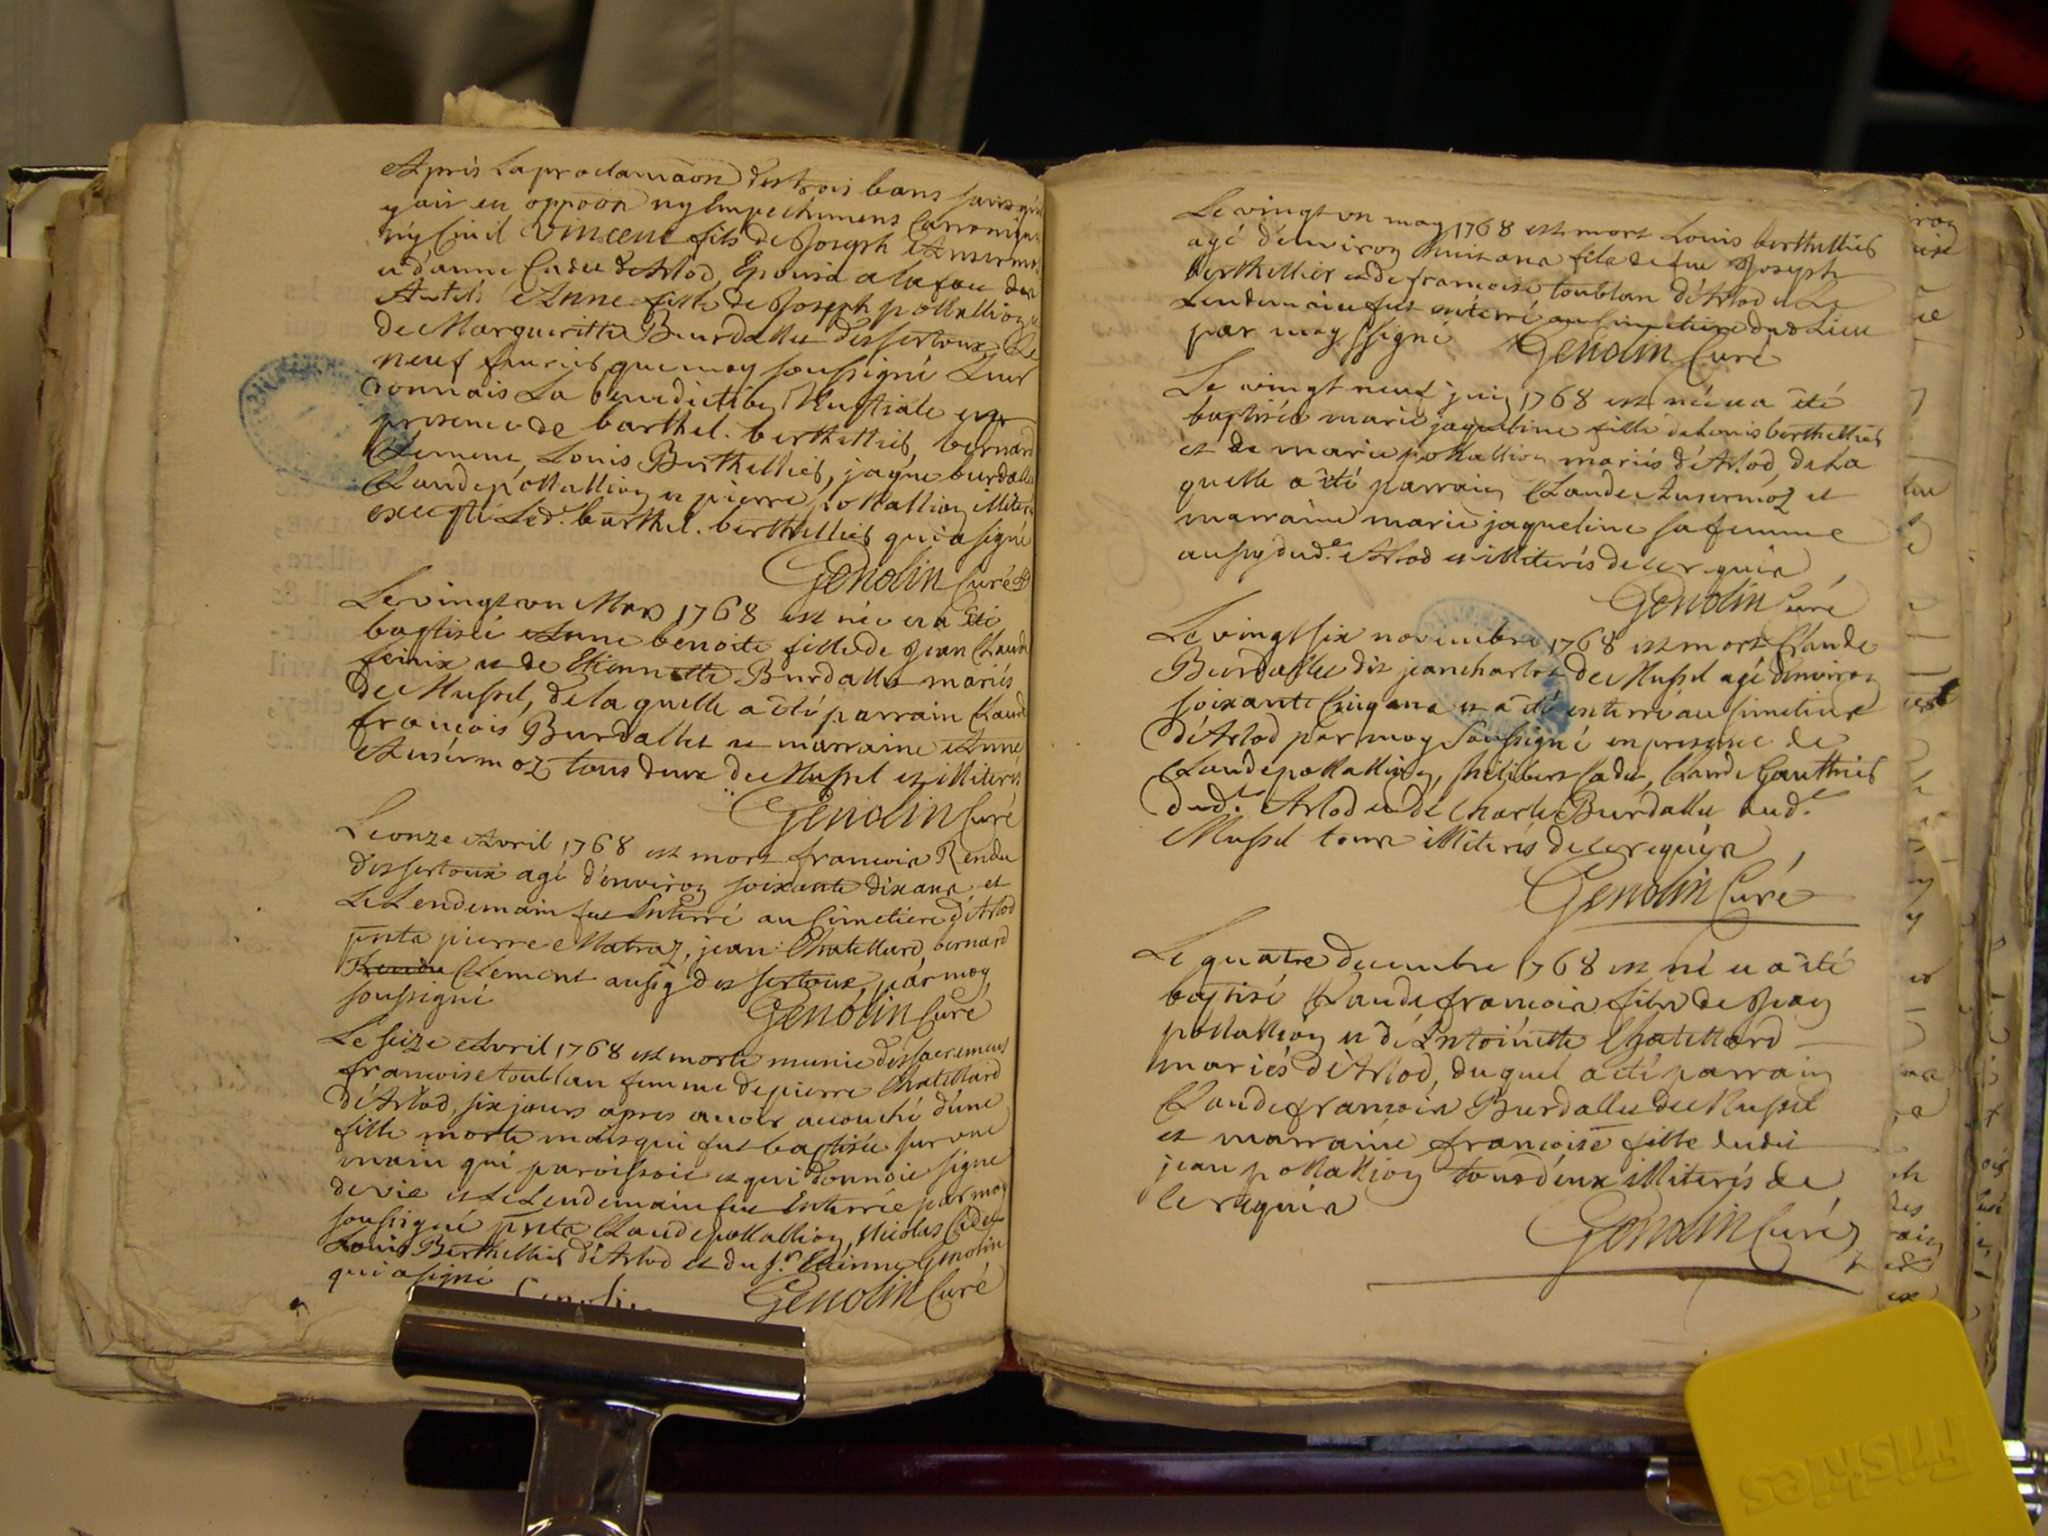 Apris La proclamaon des trois bans sans qu'il
y aie eu oppoon ny Empechemens Cannoniques
ny Civil Vincent fils de Joseph Ansermoz
et d'anne Cadet d'Arlod, Epousa a la face des
Autels Anne fille de Joseph pollallion et
de Margueritte Burdallet des sertoux, Le
neuf feuries que moy soussigné Leur
donnais La benediction Nuptiale en
presence de barthel. berthellies, bernard
Clement Louis Berthellies, jaque burdallet
Claude pollallion et pierre pollallion illiteris
excepté Led. barthel. berthellies qui a signé
Genolin Curé
Le vingt un Mars 1768 est née et a été
baptisée Anne benoite fille de Jean Claude
feinix et de Etiennette Burdallet mariés
de Mussel, de la quelle a été parrain Claude
françois Burdallet et marraine Anne
Ansermoz tous deux de Mussel et illiteris
Genolin Curé
Le onze Avril 1768 est mort francois Rendu
des sertoux agé d'environ soixante dix ans et
Le Lendemain fut Enterré au Cimetiere d'Arlod
pnts pierre Matraz, jean Chatillard, bernard
Rendu Clement aussy des sertoux, par moy
soussigné
Genolin Curé
Le seize Avril 1768 est morte munie des sacremens
francoise toublan femme de pierre Chatillard
d'Arlod, six jours apres avoir accouché d'une
fille morte mais qui fut baptisée sur une
main qui paroissoit et qui donnoie signe
de vie et Le Lendemain fut Enterrée par moy
soussigné pnts Claude pollallion, Nicolas Cadet
Louis Berthellies d'Arlod et du sr. Etienne Genolin
qui a signé
Genolin Genolin Curé
Le vingt un may 1768 est mort Louis berthellies
agé d'environ huit ans fils de feu Joseph
berthellier et de francoise toublan d'Arlod et Le
Lendemain fut enterré au Simetiere dud Lieu
par moy ssigné Genolin Curé
Le vingt neuf juin 1768 est née et a été
baptisée marie jaqueline fille de Louis berthellies
et de marie pollallion mariés d'Arlod, de La
quelle a été parrain Claude Ansermoz et
marraine marie jaqueline sa femme
aussy dud. Arlod et illiterés de ce requis
Genolin Curé
Le vingt six novembre 1768 est mort Claude
Burdallet dit jean charlot de Mussel agé d'environ
soixante Cinq ans et a été enterré au Simetiere
d'Arlod par moy Soussigné en presence de
Claude pollallion, philibert Cadet, Claude Gauthies
dud. Arlod et de Charle Burdallet dud.
Mussel tous illiterés de ce requis,
Genolin Curé
Le quatre decembre 1768 est né et a été
baptisé Claude francois fils de Jean
pollallion et d'Antoinette Chatillard
mariés d'Arlod, du quel a été parrain
Claude francois Burdallet de Mussel
et marraine francoise fille dudit
jean pollallion tous deux illiterés de
ce requis
Genolin Curé
Friskies